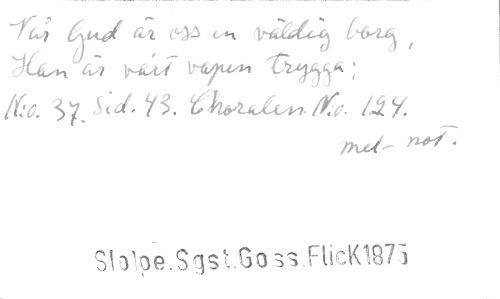 Vår Gud är oss en väldig borg,
Han är vårt vapen trygga;
N:o. 37. Sid. 43. Choralen N.o. 124.
mel- not.
Stolpe.Sgst.Goss.Flick1875